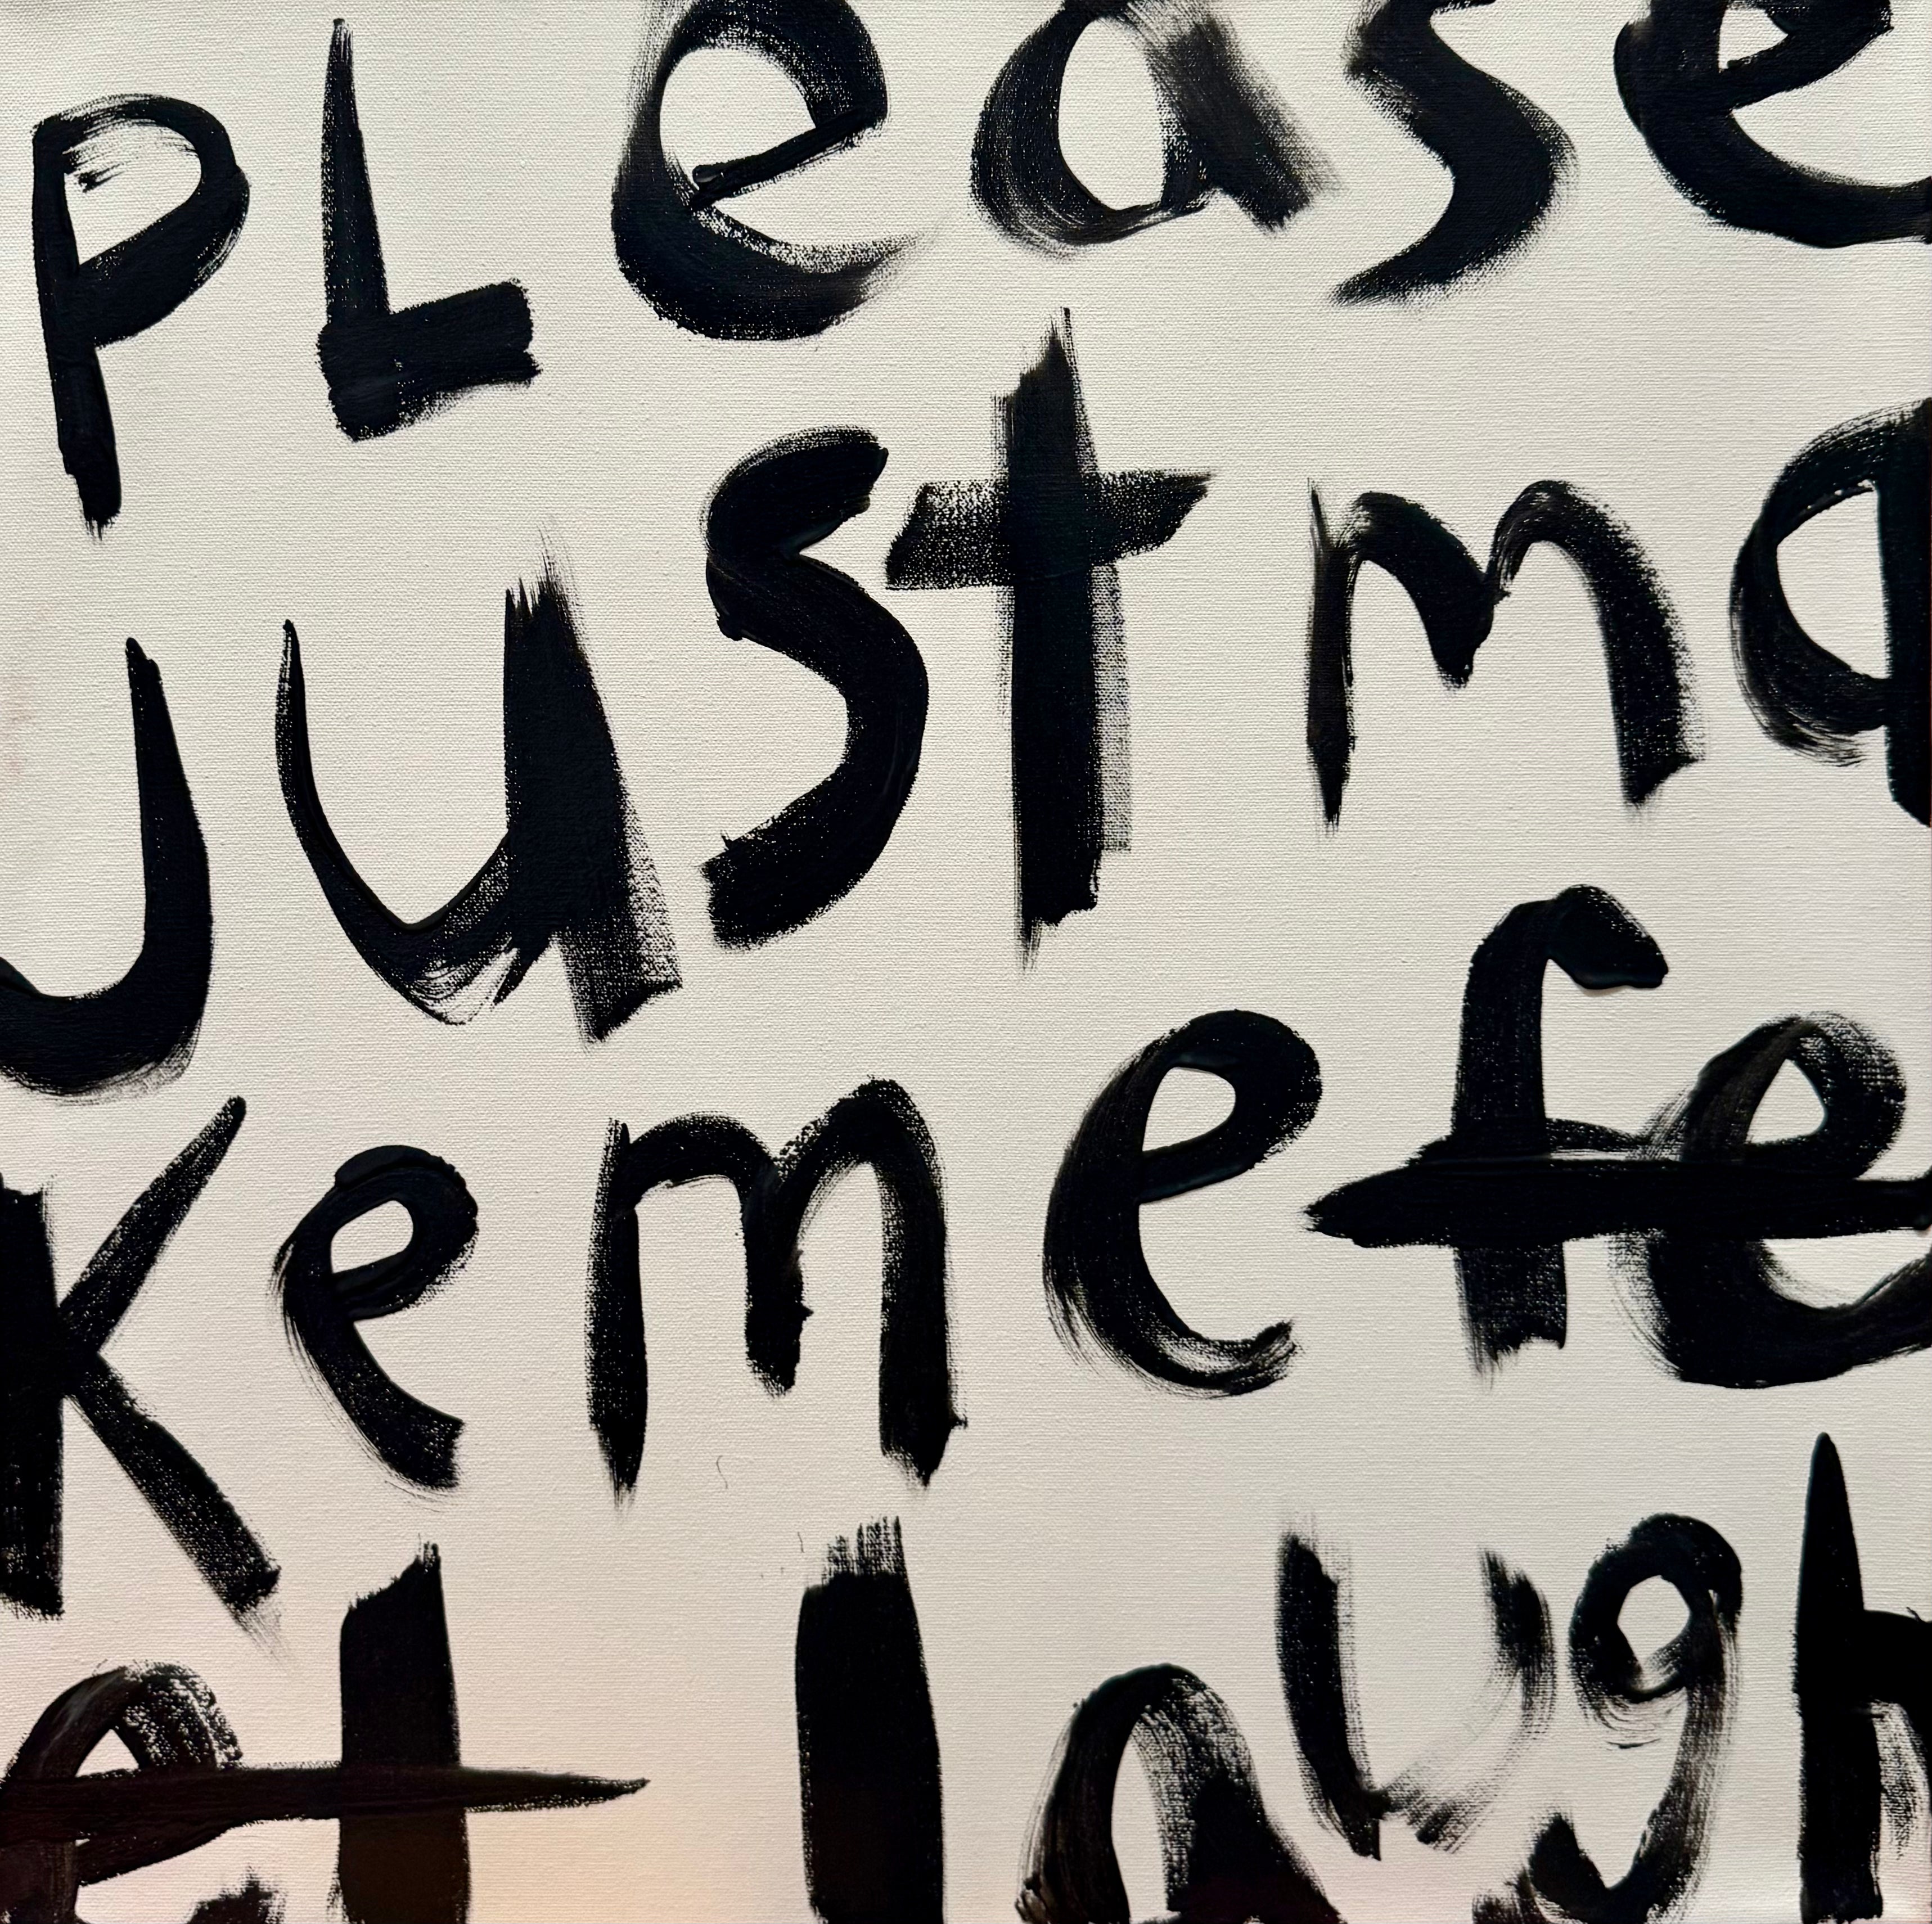 PLease
Just ma
ke me fe
et laugh